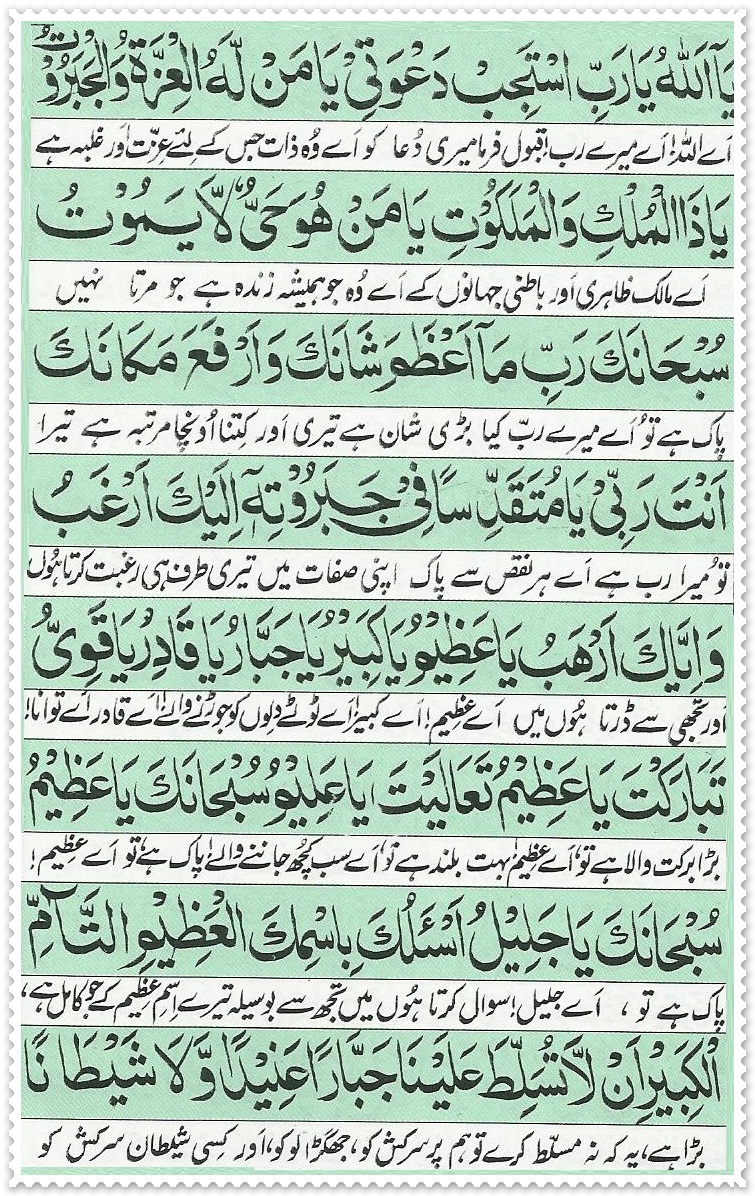 يَآ اَللهُ يَارَبِّ اسْتَجِبْ دَعْوَتِيْ يَا مَنْ لَّهُ الْعِزَّةُ وَالْجَبَرُوْتُ
اَے اللہ! اَے میرے رب! قبول فرما میری دُعا کو اَے وُہ ذات جس کے لئے عزّت اور غلبہ ہے
يَاذَا الْمُلْكِ وَالْمَلَكُوْتِ يَا مَنْ هُوَ حَيٌّ لَّا يَمُوْتُ
اَے مالک ظاہری اَور باطنی جہانوں کے اَے وُہ جو ہمیشہ زندہ ہے جو مرتا نہیں
سُبْحَانَكَ رَبِّ مَآ اَعْظَمَ شَانَكَ وَاَرْفَعَ مَكَانَكَ
پاک ہے تُو اَے میرے ربّ کیا بڑی شان ہے تیری اَور کِتنا اُونچا مرتبہ ہے تیرا
اَنْتَ رَبِّيْ يَا مُتَقَدِّسًا فِيْ جَبَرُوْتِهٖٓ اِلَيْكَ اَرْغَبُ
تُو میرا رب ہے اَے ہر نقص سے پاک اپنی صفات میں تیری طرف ہی رغبت کرتا ہُوں
وَاِيَّاكَ اَرْهَبُ يَا عَظِيْمُ يَا كَبِيْرُ يَا جَبَّارُ يَا قَادِرُ يَا قَوِيُّ
اَور تجھی سے ڈرتا ہُوں میں اَے عظیم! اَے کبیر! اَے ٹوٹے دِلوں کو جوڑنے والے! اَے قادر اَے توانا!
تَبَارَكْتَ يَا عَظِيْمُ تَعَالَيْتَ يَا عَلِيْمُ سُبْحَانَكَ يَا عَظِيْمُ
بڑا برکت والا ہے تو، اَے عظیم! بہت بلند ہے تو، اَے سب کچھ جاننے والے! پاک ہے تو اَے عظیم!
سُبْحَانَكَ يَا جَلِيْلُ اَسْئَلُكَ بِاسْمِكَ الْعَظِيْمِ التَّآمِّ
پاک ہے تو ، اَے جلیل! سوالی کرتا ہُوں میں تجھ سے بوسیلہ تیرے اِسم عظیم کے جو کامل ہے،
الْكَبِيْرِ اَنْ لَّا تُسَلِّطَ عَلَيْنَا جَبَّارًا عَنِيْدًا وَّلَا شَيْطَانًا
بڑا ہے، یہ کہ نہ مسلّط کرے تو ہم پر سرکش کو، جھگڑالو کو، اَور کِسی شیطان سرکش کو